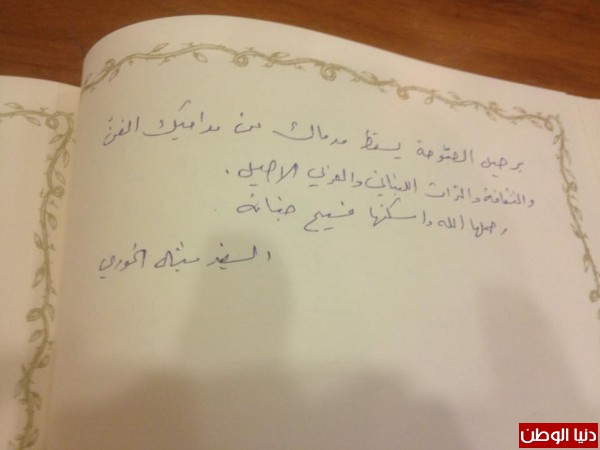 برحيل الصبّوحة يسقط مدماك من مداميك الفن
والثقافة والتراث اللبناني والعربي الاصيل.
رحمها الله واسكنها فسيح جنانه
السفير ميشال الخوري
دنيا الوطن